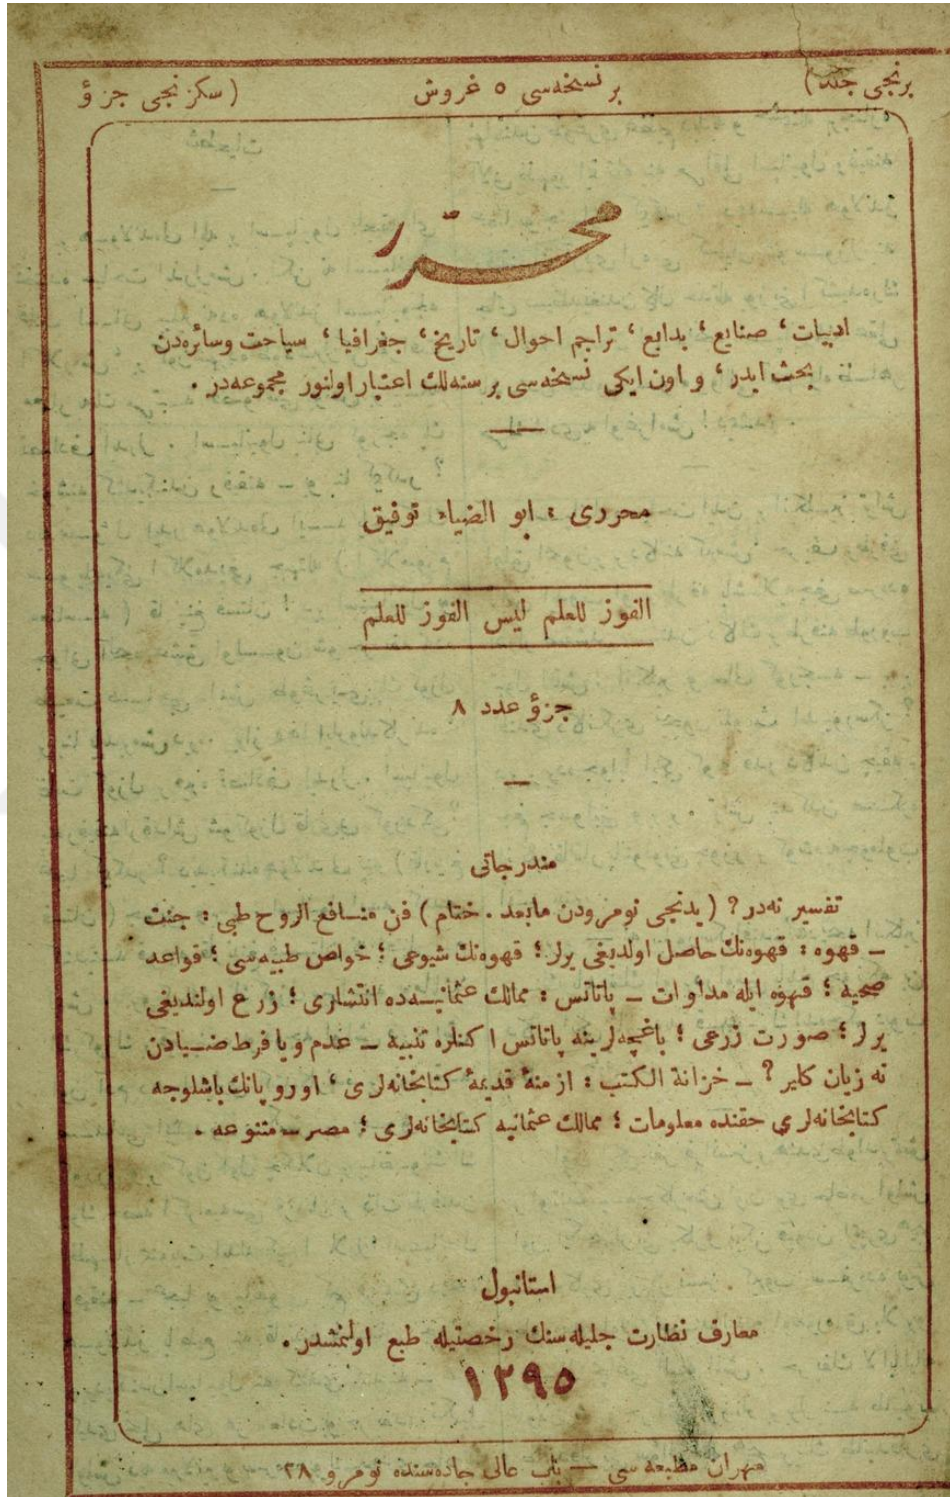 برنجی جلد) بر نسخه‌سی ٥ غروش (سکزنجی جزؤ
محرّر
ادبیات، صنایع، بدایع، تراجم احوال، تاریخ، جغرافیا، سیاحت وسائره‌دن
بحث ایدر، و اون ایکی نسخه‌سی بر سنه‌لك اعتبار اولنور مجموعه‌در .
محرری : ابو الضیاء توفیق
الفوز للعلم لیس الفوز للعلم
جزؤ عدد ٨
مندرجاتی
تفسیر نه‌در؟ (یدنجی نومرودن مابعد . ختام) فن منافع الروح طبی : جنت
ـ قهوه : قهوه‌نك حاصل اولدیغی یرلر؛ قهوه‌نك شیوعی؛ خواص طبیه‌سی؛ قواعد
صحیه؛ قهوه ایله مداوات ـ پاتاتس : ممالك عثمانیه‌ده انتشاری؛ زرع اولندیغی
یرلر؛ صورت زرعی؛ باغچه‌لرینه پاتاتس اكنلره تنبیه ـ عدم و یا فرط ضیادن
نه زیان کلیر؟ ـ خزانة الکتب : ازمنهٔ قدیمهٔ کتابخانه‌لری، اوروپانك باشلوجه
کتابخانه‌لری حقنده معلومات؛ ممالك عثمانیه کتابخانه‌لری؛ مصر ـ متنوعه .
استانبول
معارف نظارت جلیله‌سنك رخصتیله طبع اولنمشدر .
١٢٩٥
مهران مطبعه‌سی — باب عالی جاده‌سنده نومرو ٢٨